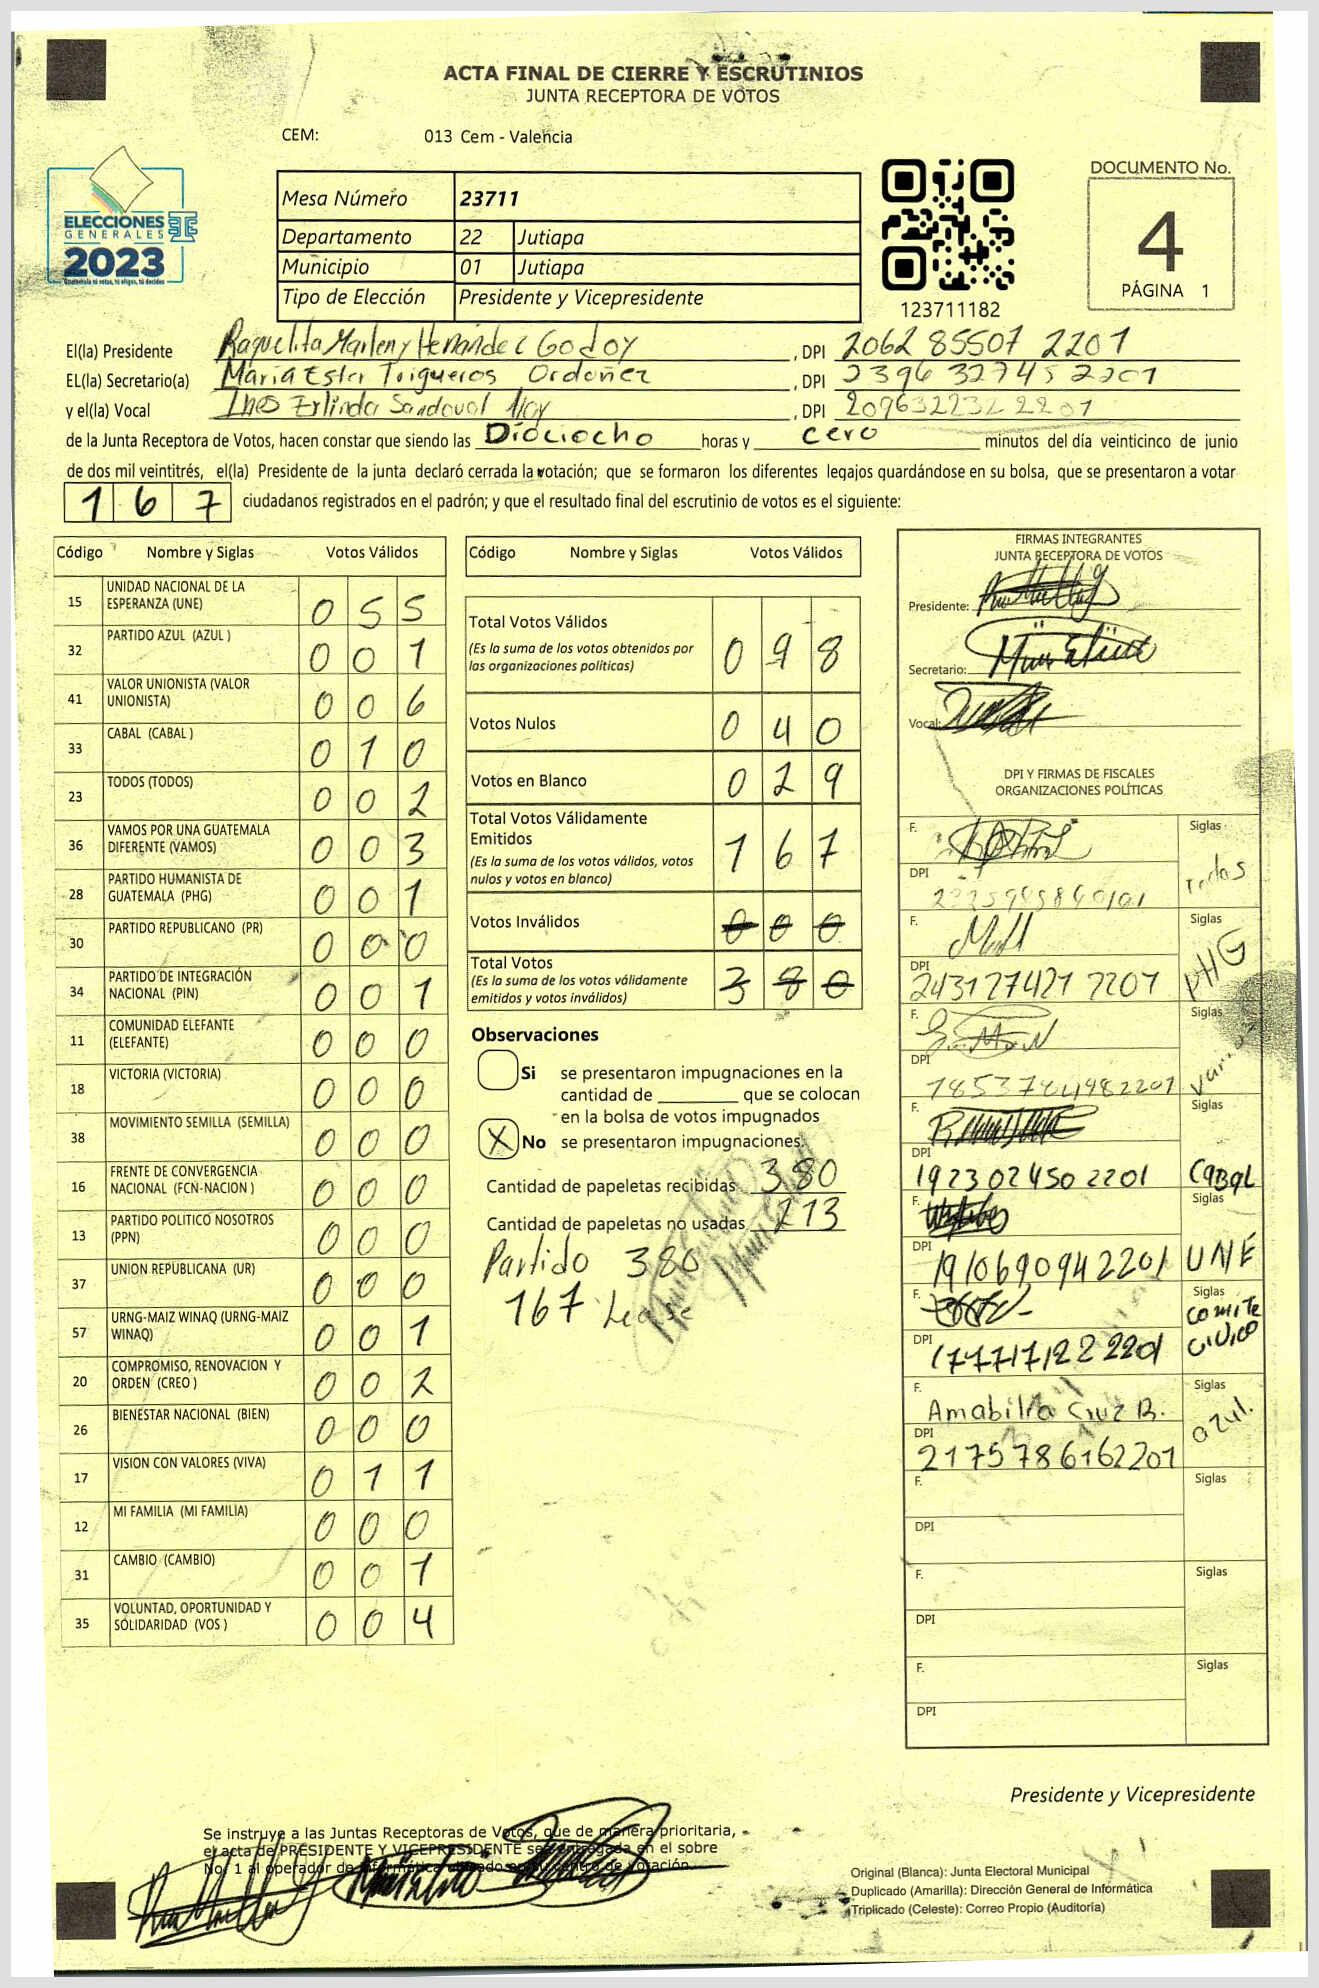 ACTA FINAL DE CIERRE Y ESCRUTINIOS
JUNTA RECEPTORA DE VOTOS
CEM: 013 Cem - Valencia
ELECCIONES
GENERALES
2023
Guatemala tú votas, tú eliges, tú decides
Mesa Número 23711
Departamento 22 Jutiapa
Municipio 01 Jutiapa
Tipo de Elección Presidente y Vicepresidente
123711182
DOCUMENTO No.
4
PÁGINA 1
El(la) Presidente Raquelita Marleny Hernández Godoy , DPI 2062 85507 2201
EL(la) Secretario(a) María Ester Trigueros Ordoñez , DPI 2396 32745 2201
y el(la) Vocal Ines Erlinda Sandoval , DPI 209632232 2201
de la Junta Receptora de Votos, hacen constar que siendo las Dieciocho horas y cero minutos del día veinticinco de junio
de dos mil veintitrés, el(la) Presidente de la junta declaró cerrada la votación; que se formaron los diferentes legajos guardándose en su bolsa, que se presentaron a votar
167 ciudadanos registrados en el padrón; y que el resultado final del escrutinio de votos es el siguiente:
Código Nombre y Siglas Votos Válidos
15 UNIDAD NACIONAL DE LA ESPERANZA (UNE) 055
32 PARTIDO AZUL (AZUL ) 001
41 VALOR UNIONISTA (VALOR UNIONISTA) 006
33 CABAL (CABAL ) 010
23 TODOS (TODOS) 002
36 VAMOS POR UNA GUATEMALA DIFERENTE (VAMOS) 003
28 PARTIDO HUMANISTA DE GUATEMALA (PHG) 001
30 PARTIDO REPUBLICANO (PR) 000
34 PARTIDO DE INTEGRACIÓN NACIONAL (PIN) 001
11 COMUNIDAD ELEFANTE (ELEFANTE) 000
18 VICTORIA (VICTORIA) 000
38 MOVIMIENTO SEMILLA (SEMILLA) 000
16 FRENTE DE CONVERGENCIA NACIONAL (FCN-NACION ) 000
13 PARTIDO POLITICO NOSOTROS (PPN) 000
37 UNION REPUBLICANA (UR) 000
57 URNG-MAIZ WINAQ (URNG-MAIZ WINAQ) 001
20 COMPROMISO, RENOVACION Y ORDEN (CREO ) 002
26 BIENESTAR NACIONAL (BIEN) 000
17 VISION CON VALORES (VIVA) 011
12 MI FAMILIA (MI FAMILIA) 000
31 CAMBIO (CAMBIO) 001
35 VOLUNTAD, OPORTUNIDAD Y SOLIDARIDAD (VOS ) 004
Código Nombre y Siglas Votos Válidos
Total Votos Válidos 098
(Es la suma de los votos obtenidos por
las organizaciones políticas)
Votos Nulos 040
Votos en Blanco 029
Total Votos Válidamente
Emitidos 167
(Es la suma de los votos válidos, votos
nulos y votos en blanco)
Votos Inválidos 000
Total Votos 380
(Es la suma de los votos válidamente
emitidos y votos inválidos)
Observaciones
Si se presentaron impugnaciones en la
cantidad de ________ que se colocan
en la bolsa de votos impugnados
X No se presentaron impugnaciones.
Cantidad de papeletas recibidas 380
Cantidad de papeletas no usadas 213
Partido 380
167
FIRMAS INTEGRANTES
JUNTA RECEPTORA DE VOTOS
Presidente:
Secretario:
Vocal:
DPI Y FIRMAS DE FISCALES
ORGANIZACIONES POLÍTICAS
F. Siglas Todos
DPI
F. Siglas PHG
DPI 243127421 2201
F. Siglas
DPI
F. Siglas CABAL
DPI 1923 02450 2201
F. Siglas UNE
DPI 191069094 2201
F. Siglas comite civico
DPI 177717122 2201
F. Amabilia Cruz B. Siglas azul.
DPI 2175786162201
F. Siglas
DPI
F. Siglas
DPI
F. Siglas
DPI
Presidente y Vicepresidente
Se instruye a las Juntas Receptoras de Votos, que de manera prioritaria,
el acta de PRESIDENTE Y VICEPRESIDENTE sea entregada en el sobre
No. 1 al operador de informática ubicado en su centro de votación.
Original (Blanca): Junta Electoral Municipal
Duplicado (Amarilla): Dirección General de Informática
Triplicado (Celeste): Correo Propio (Auditoría)